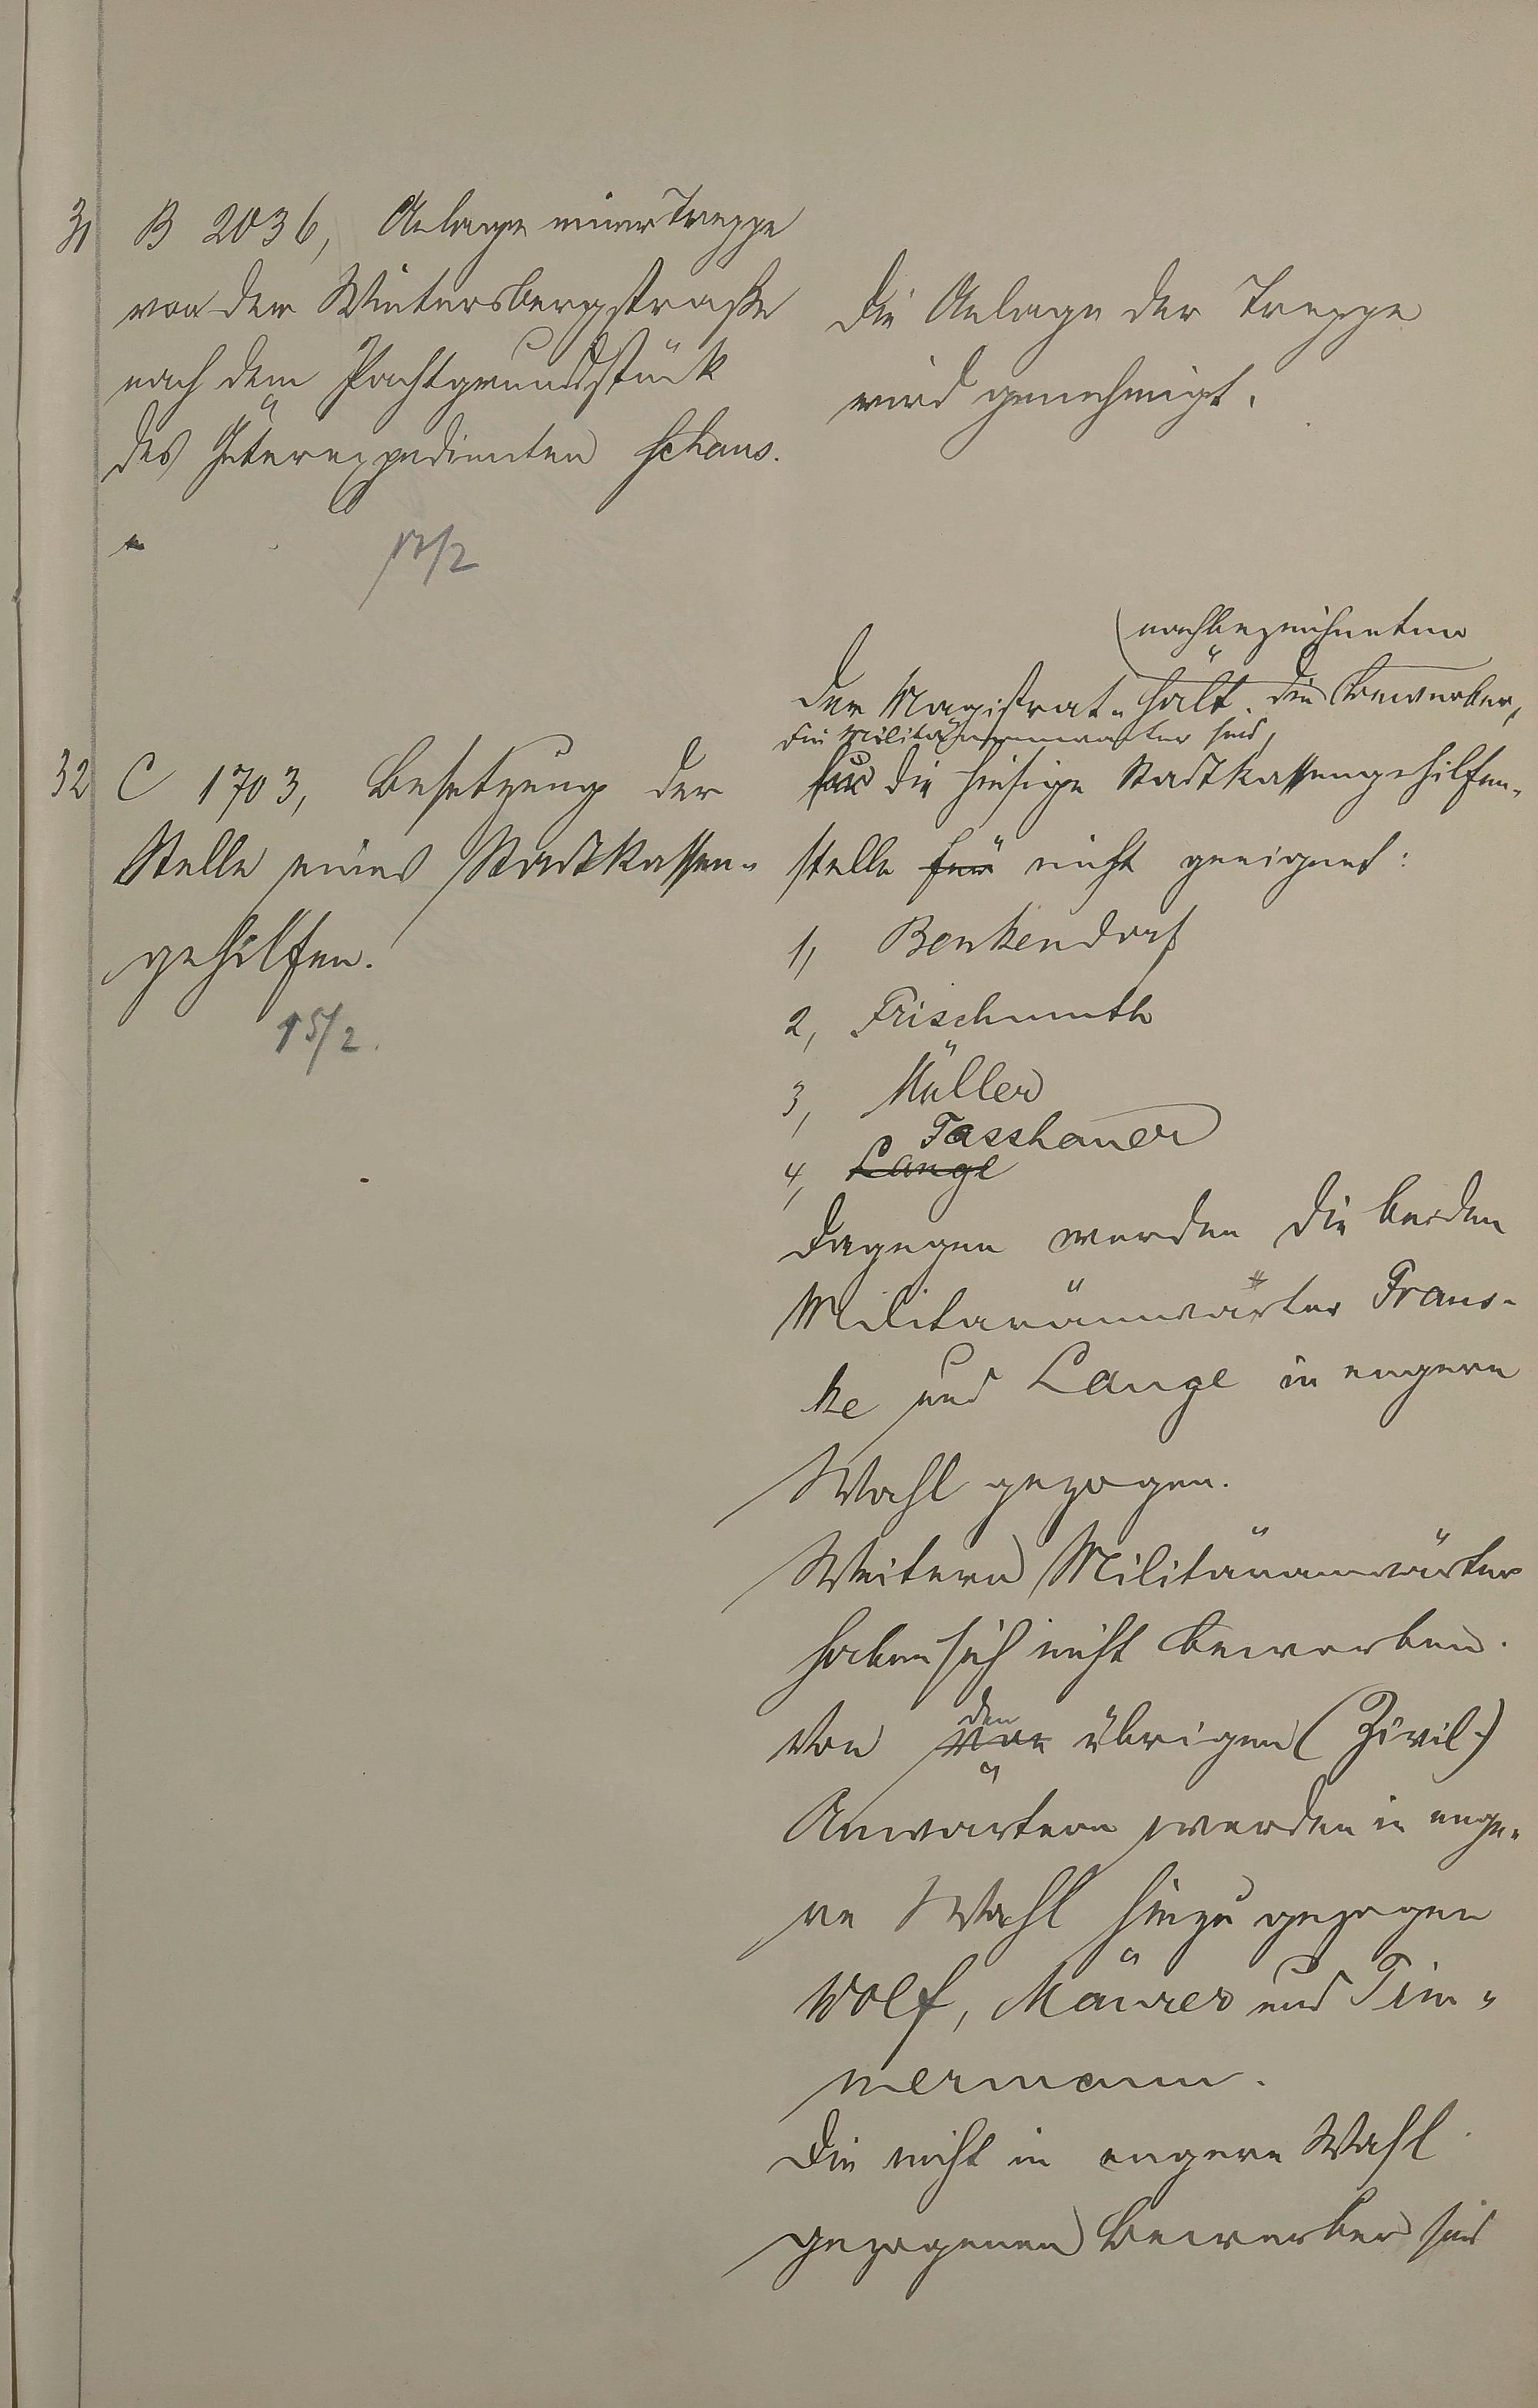 31 B 2036, Anlage einer Treppe
von der Wintersbergstraße
nach dem Pachtgrundstück
des Güterexpedienten Schaus.
17/2
Die Anlage der Treppe
wird genehmigt.
32 C 1703, Besetzung der
Stelle eines Stadtkassen-
gehilfen.
15/2.
nachbezeichneten
Der Magistrat hält die Bewerber,
die Militäranwärter sind,
für die hiesige Stadtkassengehilfen-
stelle für nicht geeignet:
1, Benkendorf
2, Frischmuth
3, Müller
Tasshauer
4, Lange
Dagegen werden die beiden
Militäranwärter Frans-
ke und Lange in engere
Wahl gezogen.
Weitere Militäranwärter
haben sich nicht beworben.
den
Von übrigen (Zivil-)
Anwärtern werden in enge-
re Wahl hinzu gezogen
Wolf, Mäurer und Tim-
mermann.
Die nicht in engere Wahl
gezogenen Bewerber sind